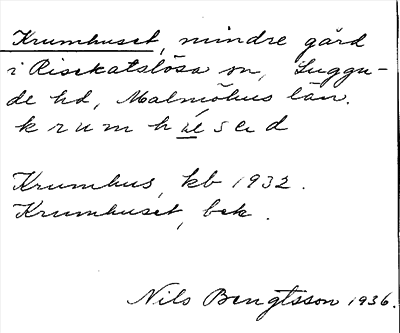 Krumhuset, mindre gård
i Risekatslösa sn, Luggu-
de hd, Malmöhus län.
k r u m h u s e d
Krumhus, kb 1932.
Krumhuset, bek.
Nils Bengtsson 1936.